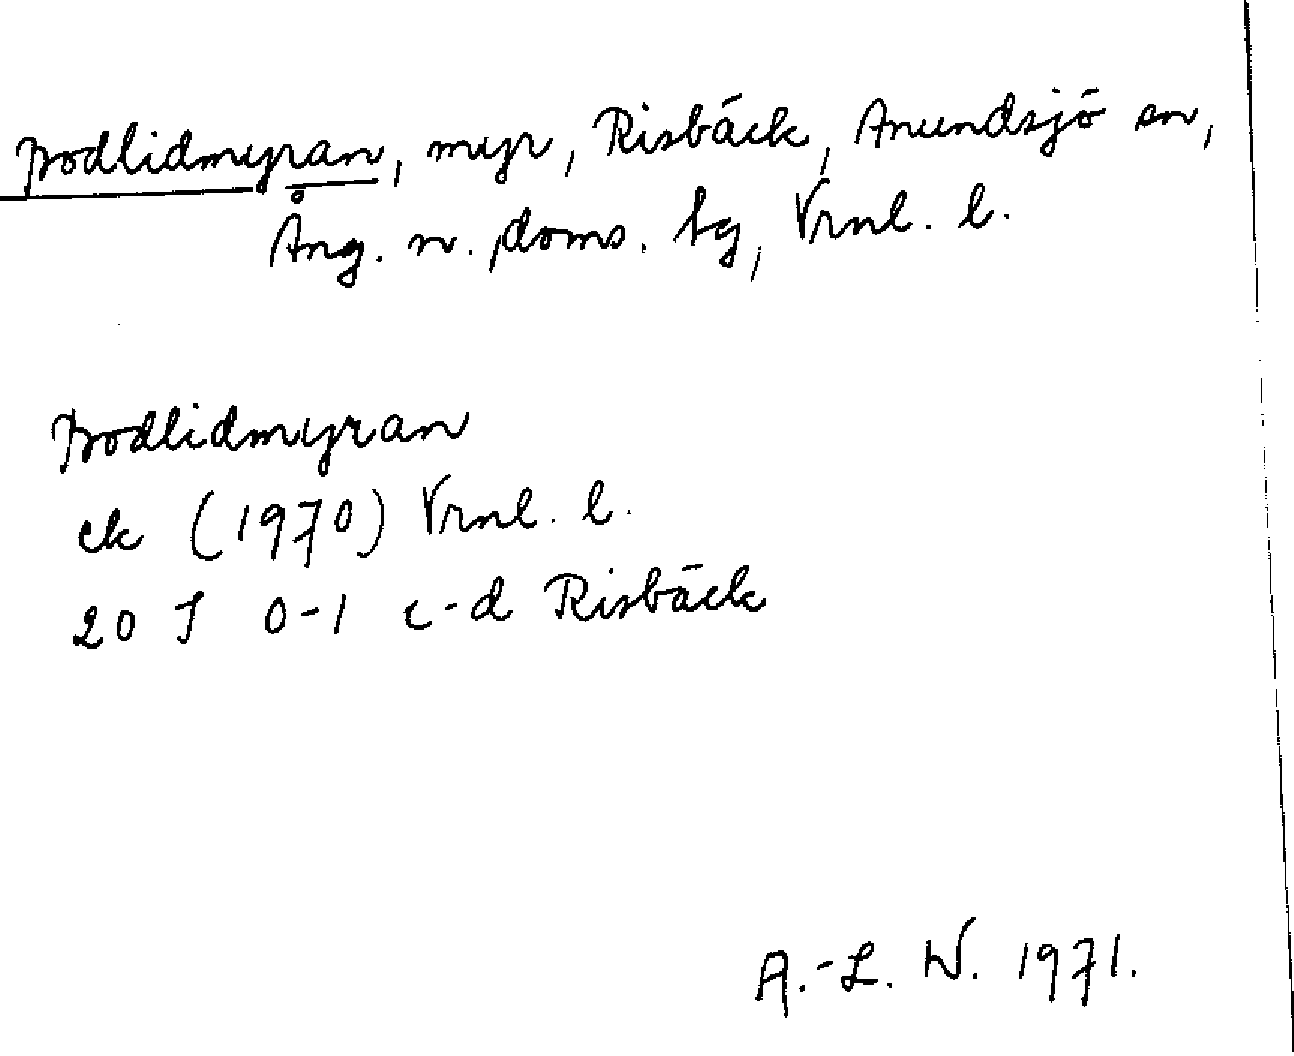 Brodlidmyran, myr, Risbäck, Anundsjö sn,
Ång. n. doms. bg, Vrnl. l.
Brodlidmyran
ek (1970) Vrnl. l.
20 J 0-1 c-d Risbäck
A.-L. W. 1971.